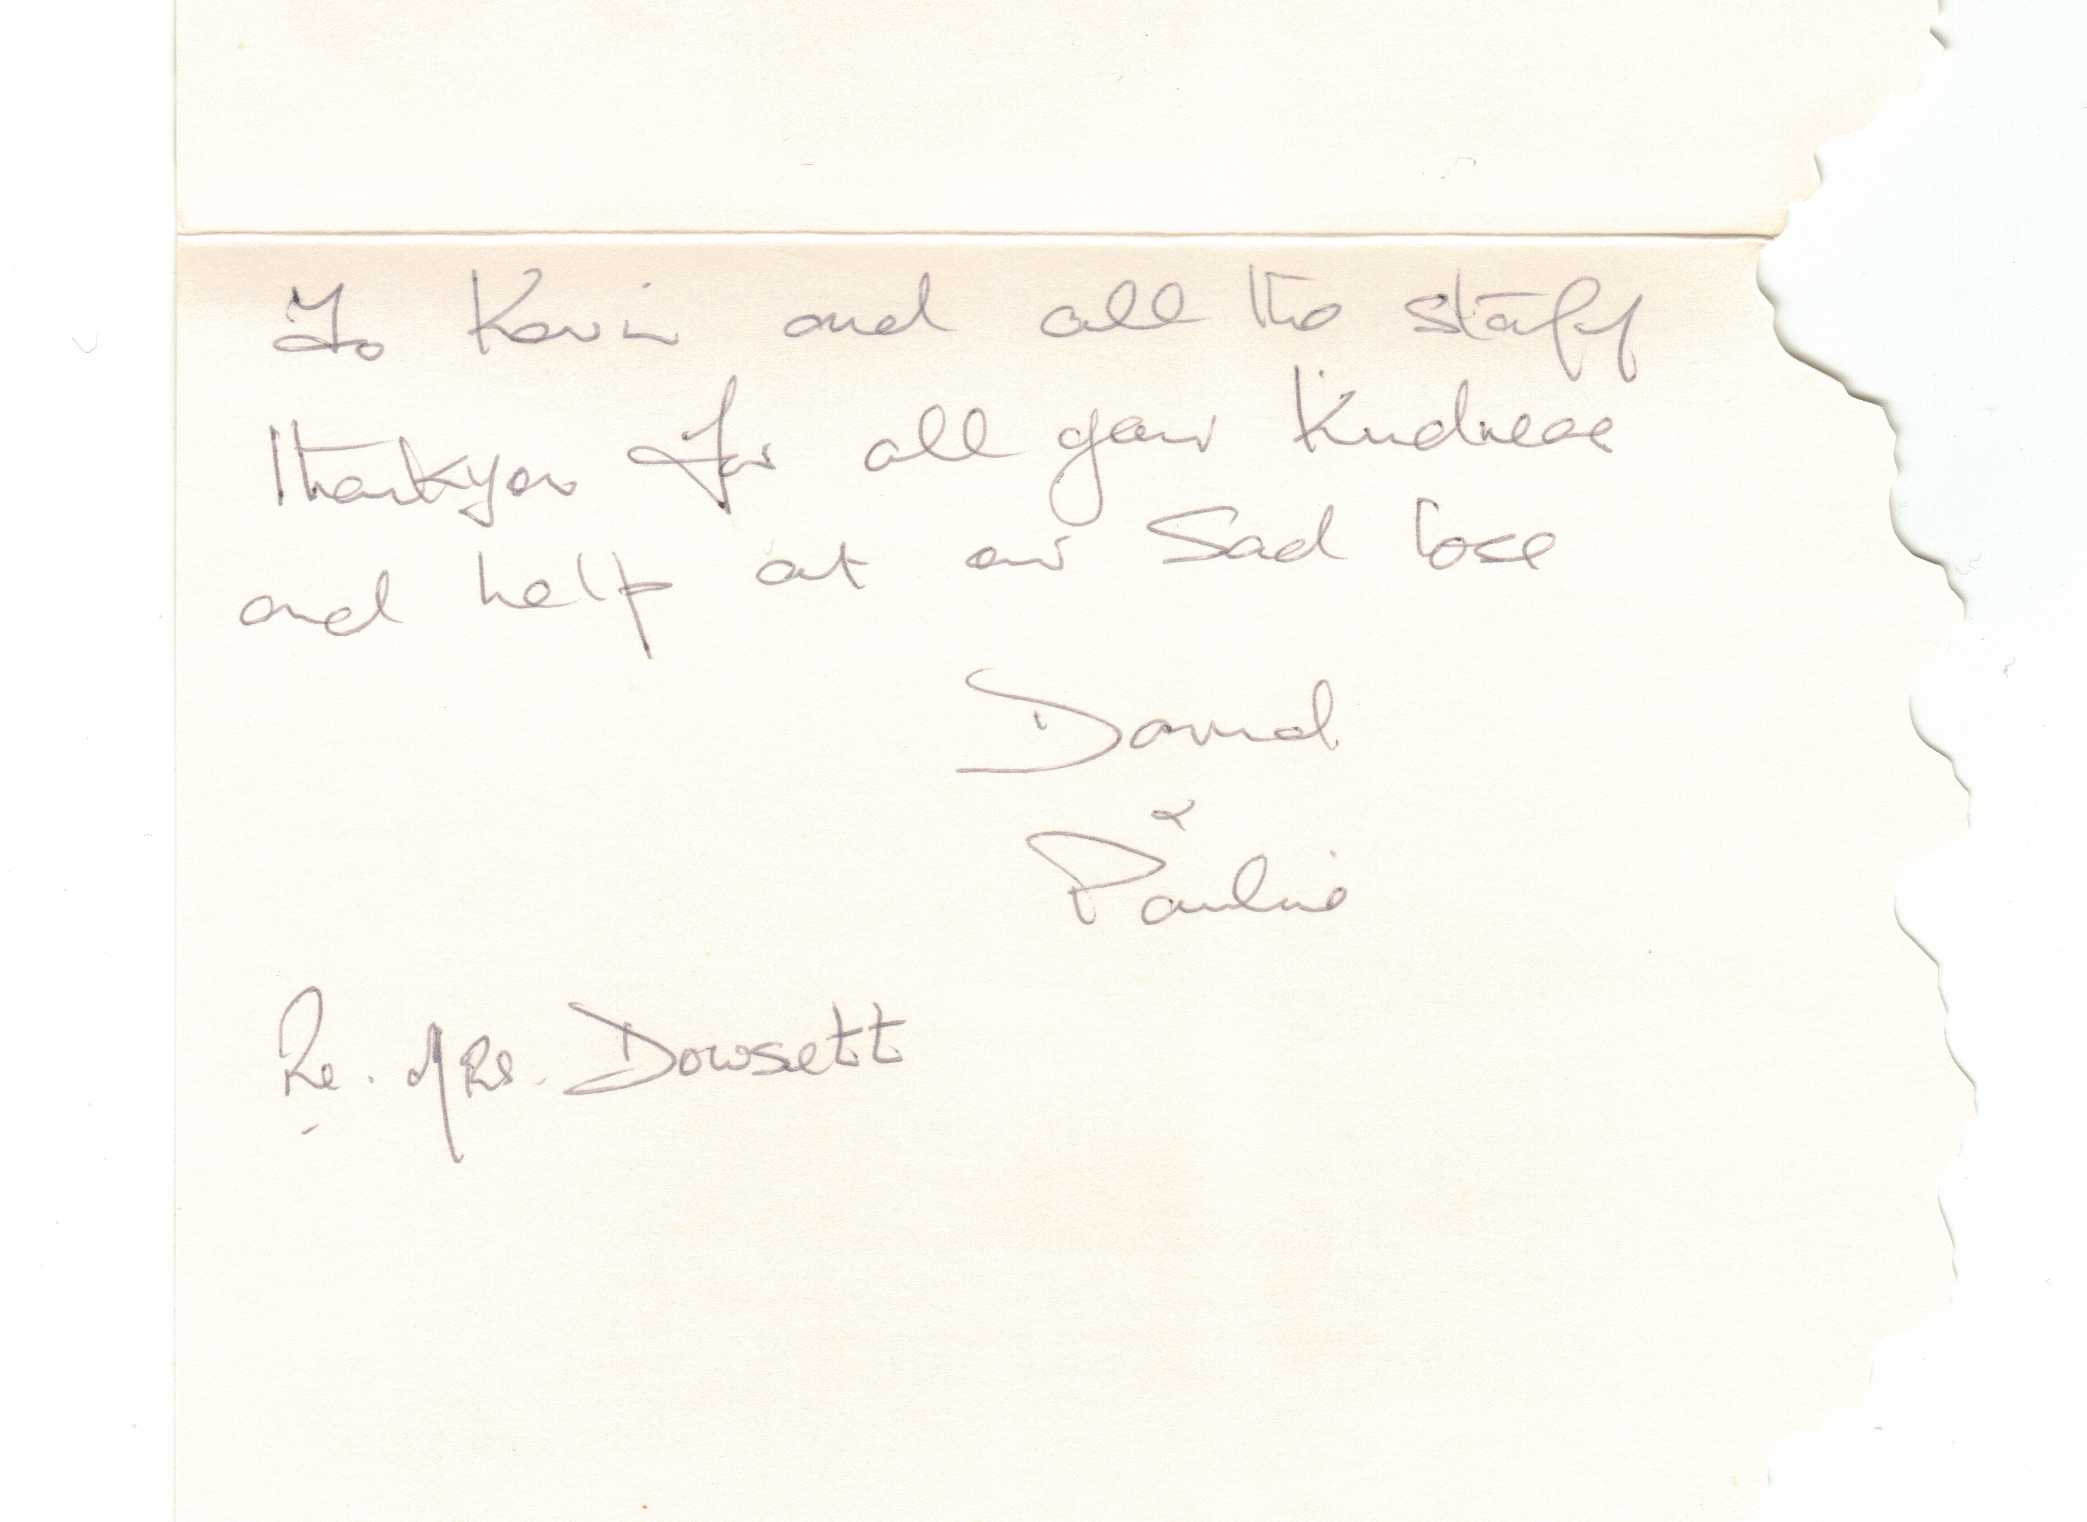 To Kevin and all the staff
thankyou for all your Kindness
and help at our Sad loss
David
&
Pauline
Re. Mrs. Dowsett